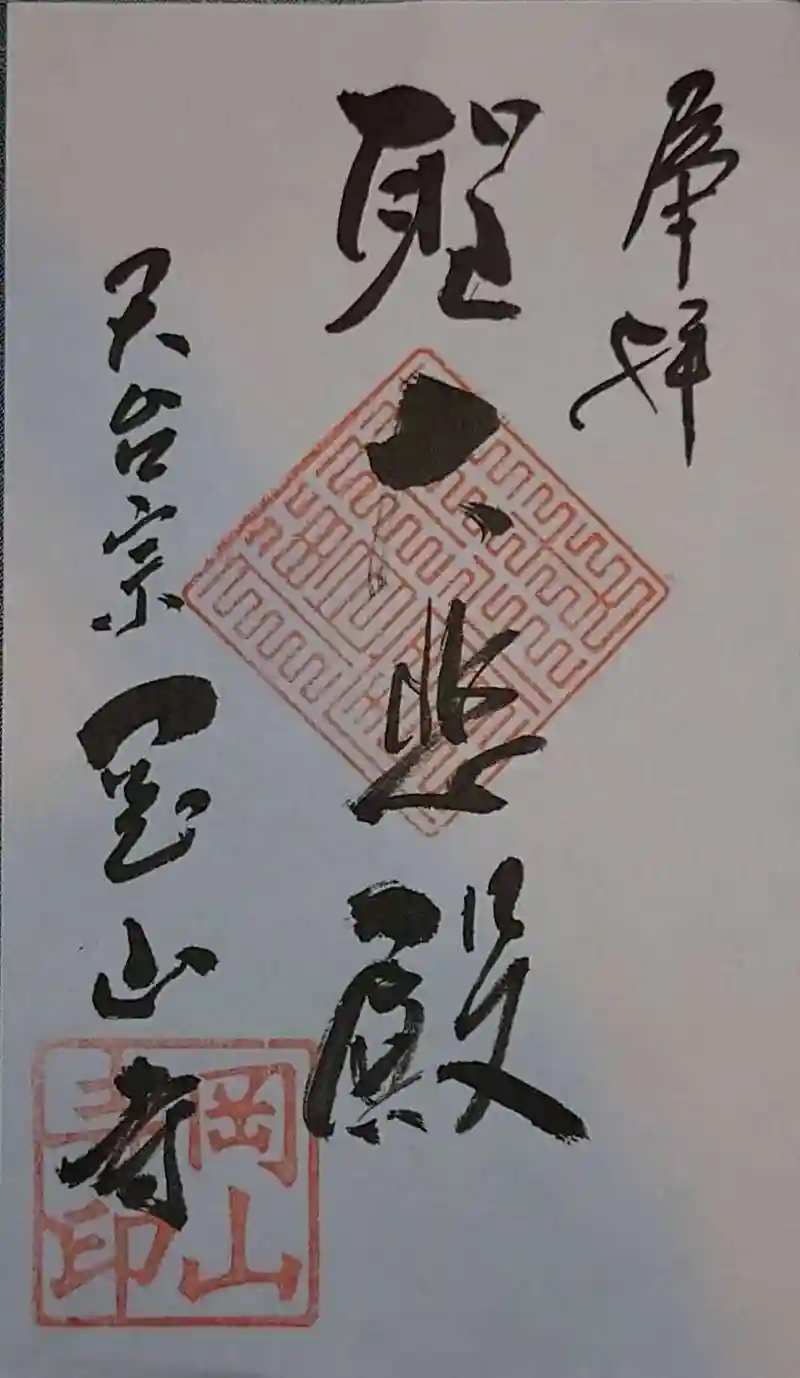 奉拝
聖大悲殿
天台宗 岡山寺
岡山寺印